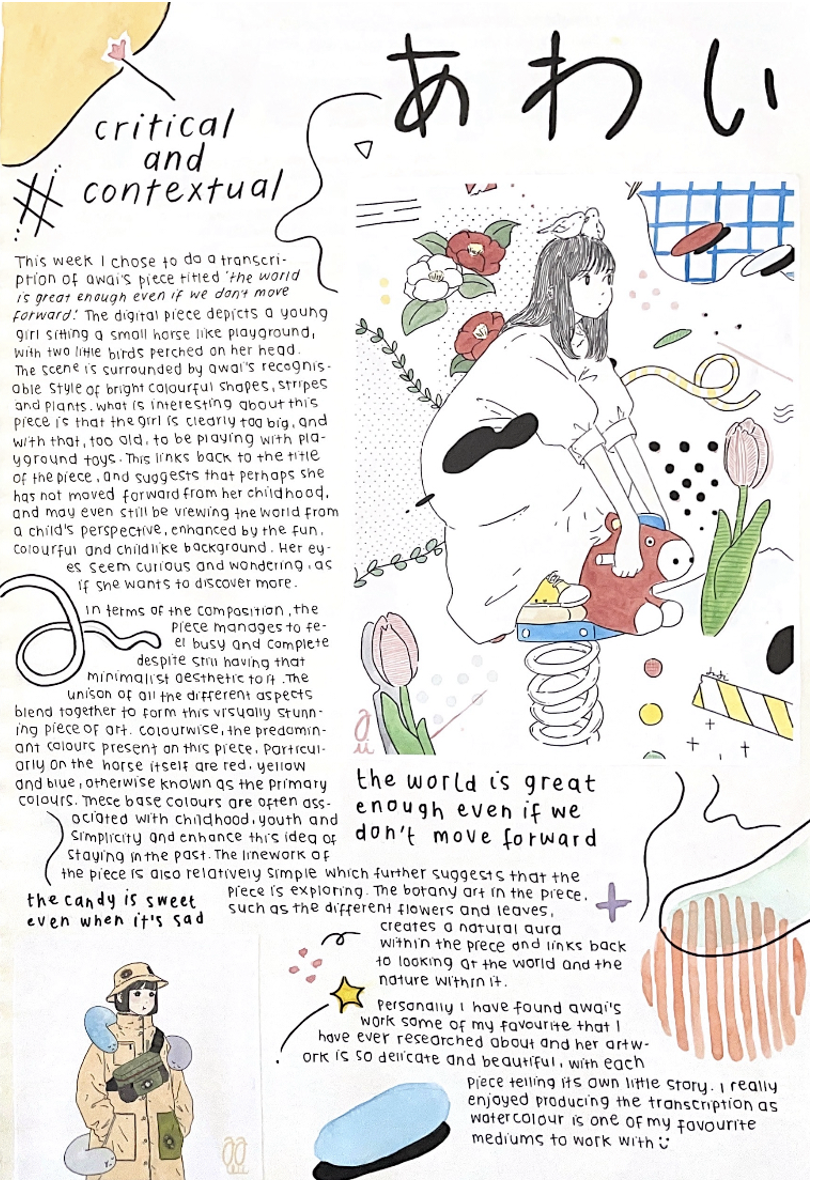 あわい
critical
and
contextual
This week I chose to do a transcri-
ption of awai's piece titled 'the world
is great enough even if we don't move
forward'. The digital piece depicts a young
girl sitting a small horse like playground,
with two little birds perched on her head.
The scene is surrounded by awai's recognis-
able style of bright colourful shapes, stripes
and plants. what is interesting about this
piece is that the girl is clearly too big, and
with that, too old, to be playing with pla-
yground toys. This links back to the title
of the piece, and suggests that perhaps she
has not moved forward from her childhood,
and may even still be viewing the world from
a child's perspective, enhanced by the fun,
colourful and childlike background. Her ey-
es seem curious and wondering, as
if she wants to discover more.
In terms of the composition, the
piece manages to fe-
el busy and complete
despite still having that
minimalist aesthetic to it. The
unison of all the different aspects
blend together to form this visually stunn-
ing piece of art. colourwise, the predomin-
ant colours present on this piece, particul-
arly on the horse itself are red, yellow
and blue, otherwise known as the primary
colours. These base colours are often ass-
ociated with childhood, youth and
simplicity and enhance this idea of
staying in the past. The linework of
the piece is also relatively simple which further suggests that the
piece is exploring. The botany art in the piece,
such as the different flowers and leaves,
creates a natural aura
within the piece and links back
to looking at the world and the
nature within it.
Personally I have found awai's
work some of my favourite that I
have ever researched about and her artw-
ork is so delicate and beautiful, with each
piece telling its own little story. I really
enjoyed producing the transcription as
watercolour is one of my favourite
mediums to work with
the world is great
enough even if we
don't move forward
the candy is sweet
even when it's sad